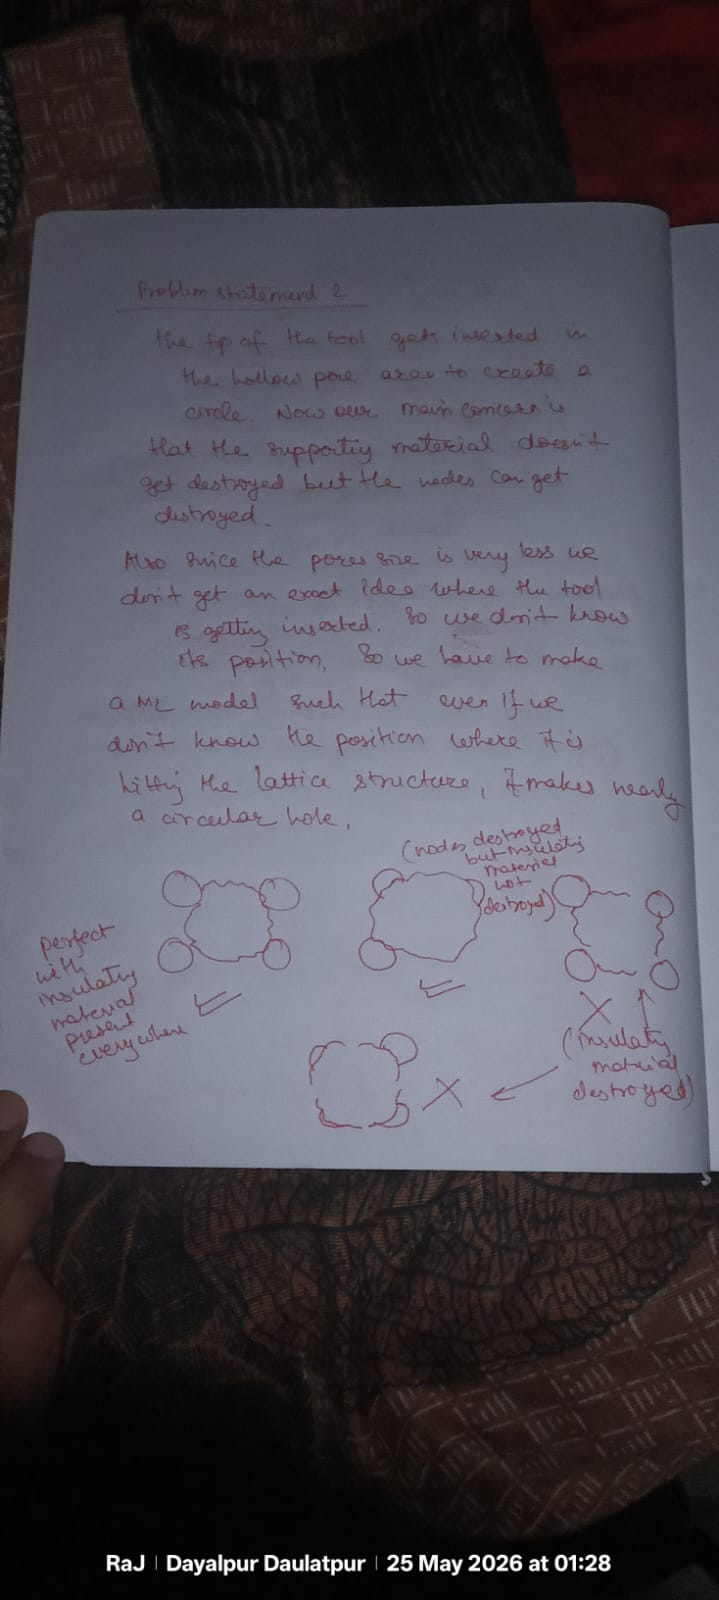 Problem statement 2
the tip of the tool gets inserted in
the hollow pore area to create a
circle. Now our main concern is
that the supporting material doesn't
get destroyed but the nodes can get
distroyed.
Also since the pores size is very less we
don't get an exact idea where the tool
is getting inserted. So we don't know
its position. So we have to make
a ML model such that even if we
don't know the position where it is
hitting the lattice structure, it makes nearly
a circular hole.
(nodes destroyed
but insulating
material
not
destroyed)
perfect
with
insulating
material
present
everywhere
(insulating
material
destroyed)
RaJ | Dayalpur Daulatpur | 25 May 2026 at 01:28